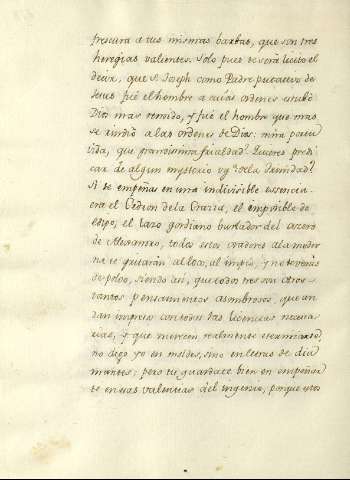 frescura a tus mismas barbas, que son tres
heregias valientes. Solo pues te será licito el
decir, que S. Joseph como Padre putativo de
Jesus fué el hombre a cuias ordenes estubo
Dios mas rendido, y fué el hombre que mas
se rindió a las ordenes de Dios: mira por tu
vida, que grandisima frialdad! Quieres predi
car de algun mysterio vg. de la Trinidad?
Si te empeñas en una indivisible essencia
era el Gedeon de la Gracia, el
Edipo, el lazo gordiano burlador del acero
de Alexandro, todos estos oradores a la moder
na te gritarán al loco, al impio, y
siendo asi, que todos tres son otros
tantos pensamientos asombrosos, que an
dan impresos con todas las licencias necesa
rias, y que merecen realmente eternizarse,
no digo yo en moldes, sino en letras de dia
mantes; pero tu guardate bien en empeñar
te en estas valentias del ingenio, porque estos